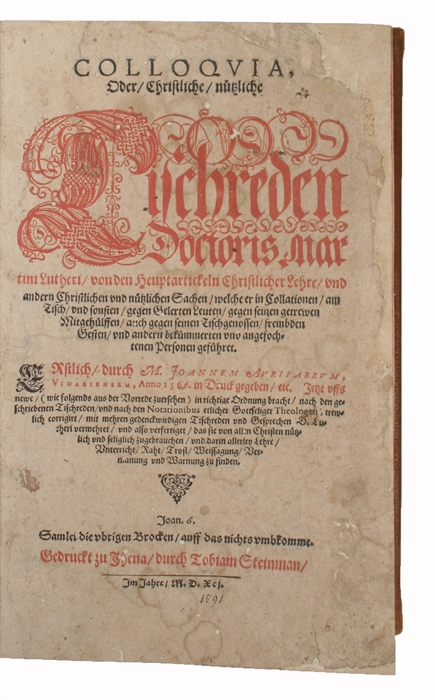 COLLOQVIA,
Oder/ Christliche/ nützliche
Tischreden
Doctoris Mar
tini Lutheri/ von den Heuptartickeln Christlicher Lehre/ vnd
andern Christlichen vnd nützlichen Sachen/ welche er in Collationen/ am
Tisch/ vnd sonsten/ gegen Gelerten Leuten/ gegen seinen getrewen
Mitgehülffen/ auch gegen seinen Tischgenossen/ frembden
Gesten/ vnd andern bekümmerten vnd angefoch-
tenen Personen geführet.
ERstlich/ durch M. JOANNEM AVRIFABRVM,
VINARIENSEM, Anno 1566. in Druck gegeben/ etc. Jetzt vffs
newe/ (wie folgends aus der Vorrede zuersehen) in richtige Ordnung bracht/ nach den ge-
schriebenen Tischreden/ vnd nach den Notationibus etlicher Gottseliger Theologen/ trew-
lich corrigirt/ mit mehren gedenckwirdigen Tischreden vnd Gesprechen D. Lu-
theri vermehret/ vnd also verfertiget/ das sie von allen Christen nütz-
lich vnd seliglich zugebrauchen/ vnd darin allerley Lehre/
Vnterricht/ Raht/ Trost/ Weissagung/ Ver-
manung vnd Warnung zu finden.
Joan. 6.
Samlet die vbrigen Brocken/ auff das nichts vmbkomme.
Gedruckt zu Jhena/ durch Tobiam Steinman/
Im Jahre/ M. D. Xcj.
1591